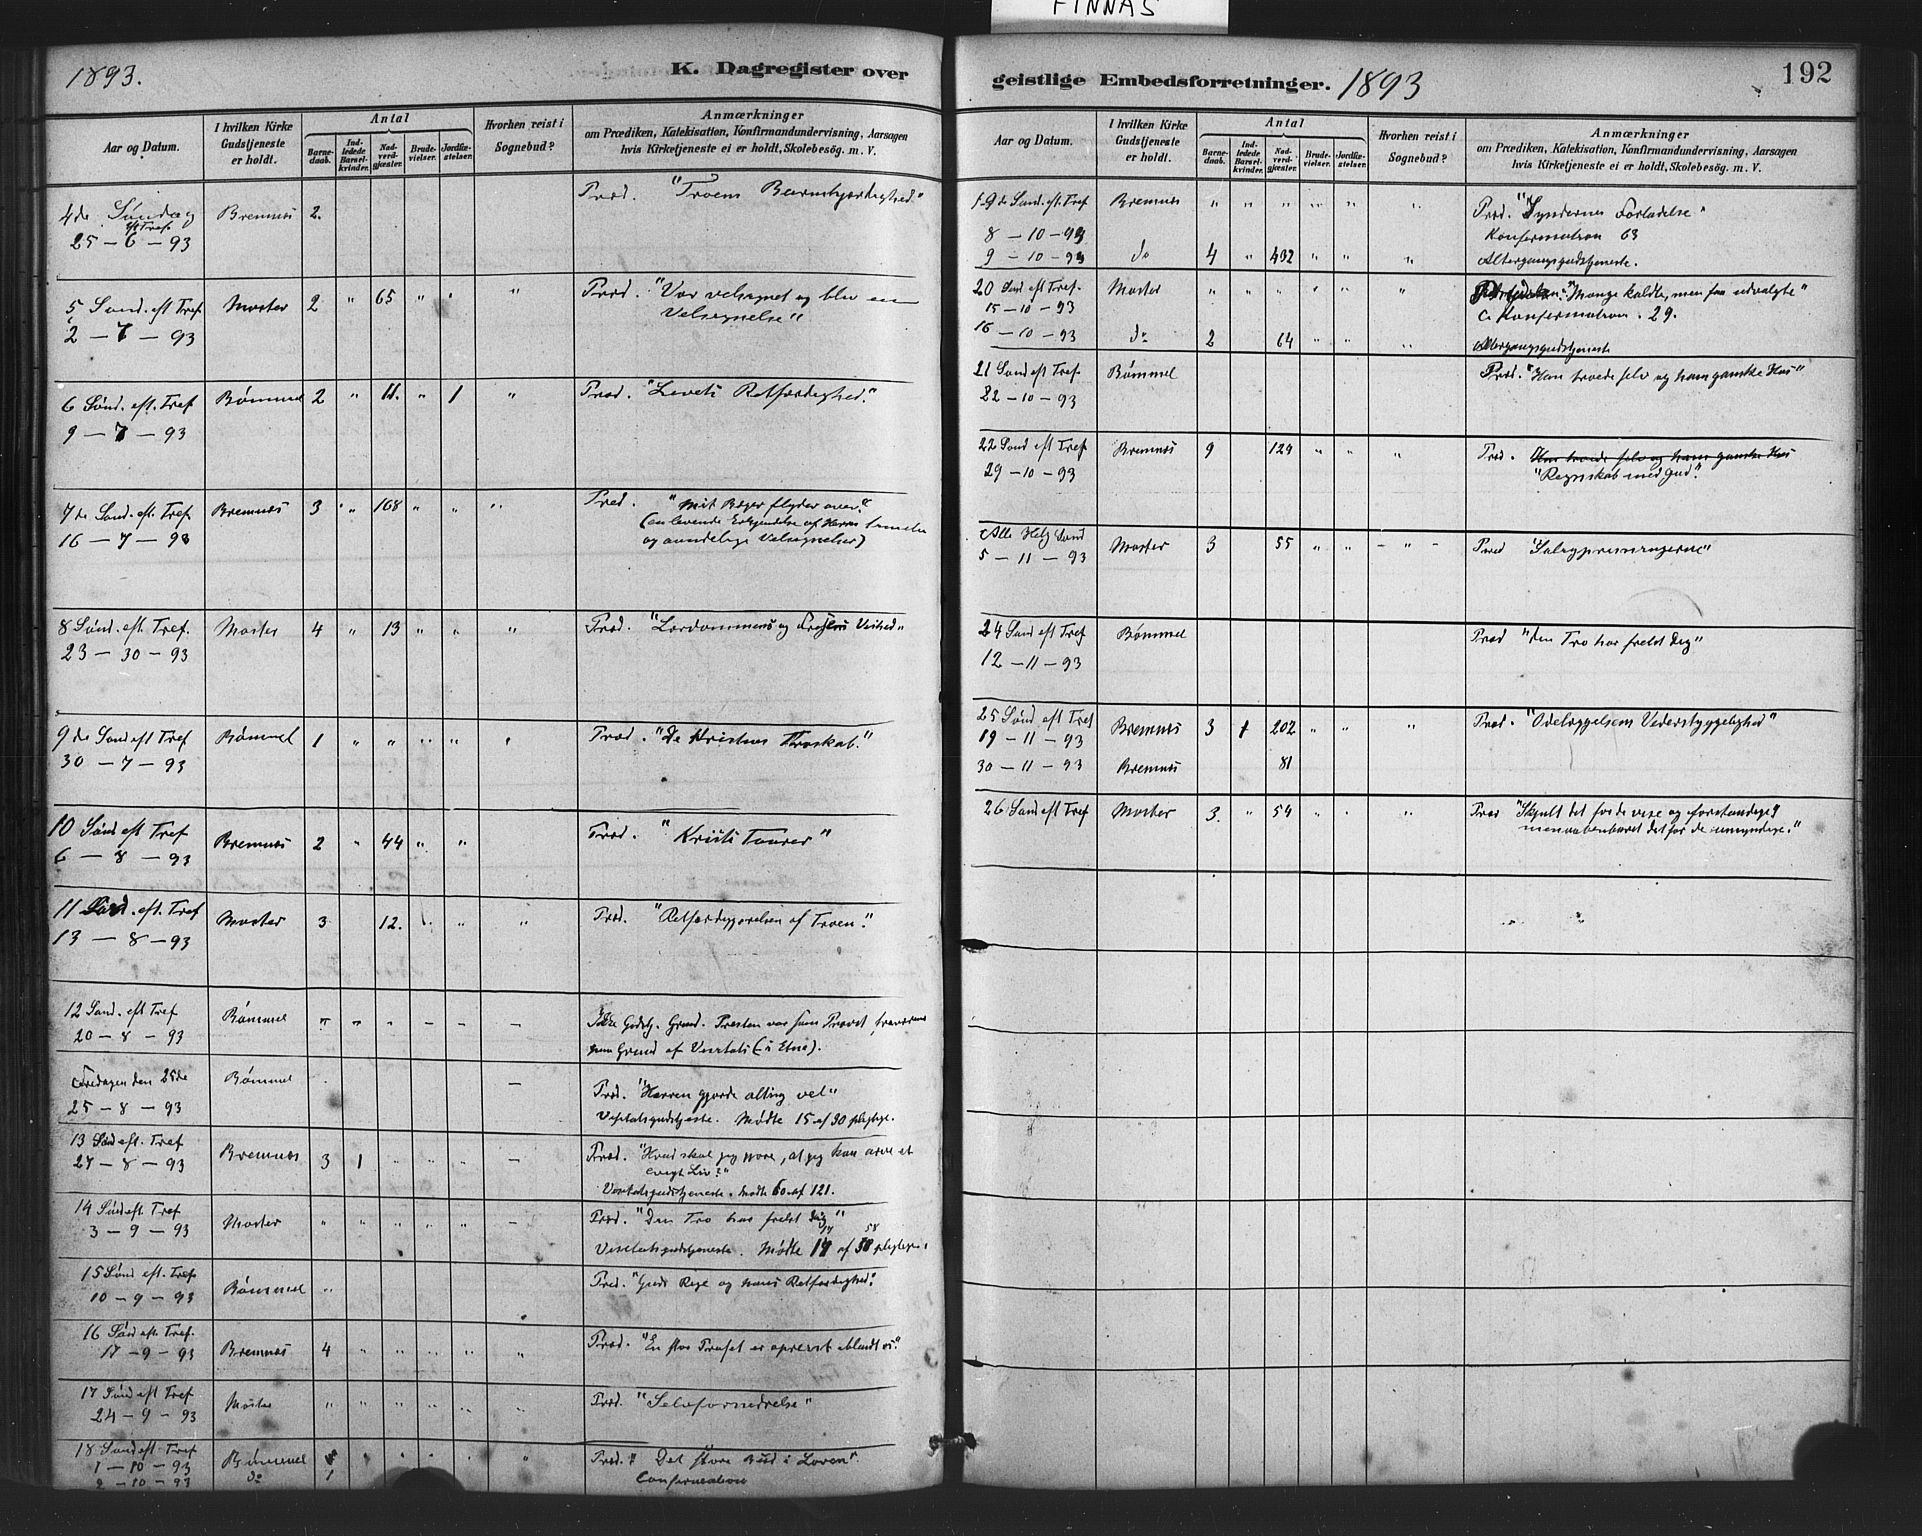 FINNÅS
1893.
K. Dagregister over
Aar og Datum.
I hvilken Kirke Gudstjeneste er holdt.
Antal
Barne-daab.
Ind-ledede Barsel-kvinder.
Nad-verd-gjester.
Brude-vielser.
Jordfæ-stelser.
Hvorhen reist i Sognebud?
Anmærkninger
om Prædiken, Katekisation, Konfirmandundervisning, Aarsagen
hvis Kirketjeneste ei er holdt, Skolebesög. m. V.
4de Søndag Bremnes 2. Præd. "Troens Barmhjærtighed."
eft Tref.
25 - 6 - 93
5 Sønd. eft Tref Moster 2 " 65 " " Præd. "Vær velsignet og bliv en
2 - 7 - 93 Velsignelse"
6 Sønd. eft. Tref Bømmel 2 " 11. " 1 " Præd. "Livets Retfærdighed."
9 - 7 - 93
7de Sønd. eft. Tref Bremnes 3 " 168 " " " Præd. "Mit Bæger flyder over."
16 - 7 - 93 (en levende Erkjendelse af Herrens
og aandelige Velsignelser)
8 Sønd. eft. Tref. Moster 4 " 13 " " " Præd. "Lærdommens og Vished"
23 - 30 - 93
9de Sønd eft Tref Bømmel 1 " " " " " Præd. "De Kristnes Troskab."
30 - 7 - 93
10 Sønd eft Tref Bremnes 2 " 44 " " Præd. "Kristi Taarer"
6 - 8 - 93
11 Sønd. eft. Tref Moster 3 12. " " " Præd. "Retfærdiggjørelsen af Troen."
13 - 8 - 93
12 Sønd. eft Tref Bømmel " " " - - - Ikke Gudstj. Grund. Presten var som Provst fraværende
20 - 8 - 93 paa Grund af Visitats (i Etne).
Fredagen den 25de Bømmel - Præd. "Herren gjorde alting vel"
25 - 8 - 93 Visitatsgudstjeneste. Mødte 15 af 30 pligtige.
13 Sønd eft. Tref Bremnes 3 1 " " " - Præd. "Hvad skal jeg gjøre, at jeg kan arve et
27 - 8 - 93 evigt Liv?"
Visitatsgudstjeneste. Mødte 60 af 121.
14 Sønd eft. Tref Moster " " " " " - Præd. "Din Tro har frelst Dig"
3 - 9 - 93 Visitatsgudstjeneste. Mødte 17 af 58 pligtige.
15 Sønd eft. Tref Bømmel " Præd. "Guds Rige og hans Retfærdighed."
10 - 9 - 93
16 Sønd eft. Tref. Bremnes 4 " " " " " Præd. "En stor Profet er opreist iblandt os."
17 - 9 - 93
17 Sønd eft Tref Moster " " " " " " Præd. "Selvfornedrelse"
24 - 9 - 93
18 Sønd eft. Tref Bømmel " " " " " Præd. "Det store Bud i Loven".
1 - 10 - 93 do 1 Confirmation
2 - 10 - 93
geistlige Embedsforretninger. 1893
192
Aar og Datum.
I hvilken Kirke Gudstjeneste er holdt.
Antal
Barne-daab.
Ind-ledede Barsel-kvinder.
Nad-verd-gjester.
Brude-vielser.
Jordfæ-stelser.
Hvorhen reist i Sognebud?
Anmærkninger
om Prædiken, Katekisation, Konfirmandundervisning, Aarsagen
hvis Kirketjeneste ei er holdt, Skolebesög. m. V.
19de Sønd. eft. Tref Bremnes " " " " " " Præd. "Syndernes Forladelse"
8 - 10 - 93 Konfirmation 63
9 - 10 - 93 do 4 " 432 " " " Altergangsgudstjeneste.
20 Sønd eft Tref. Moster " " " " " " "Mange kaldte, men faa udvalgte"
15 - 10 - 93 Konfirmation. 29.
16 - 10 - 93 do 2 64 " " " Altergangsgudstjeneste
21 Sønd eft Tref. Bømmel Præd. "Han troede selv og hans ganske Hus"
22 - 10 - 93
22 Sønd eft Tref Bremnes 9 129 " " " Præd. Han troede selv og hans ganske Hus
29 - 10 - 93 "Regnskab med Gud."
Alle Helg Sønd Moster 3 55 " " - " - Præd "Saligprisningerne"
5 - 11 - 93
24 Sønd eft Tref Bømmel Præd "Din Tro har frelst Dig"
12 - 11 - 93
25 Sønd eft Tref Bremnes 3 1 202 " " " Præd. "Ødelæggelsens Vederstyggelighed"
19 - 11 - 93
30 - 11 - 93 Bremnes 81
26 Sønd eft Tref Moster 3. " 54 " " " Præd "Skjult det for de vise og forstandige
men aabenbaret det for de umyndige."